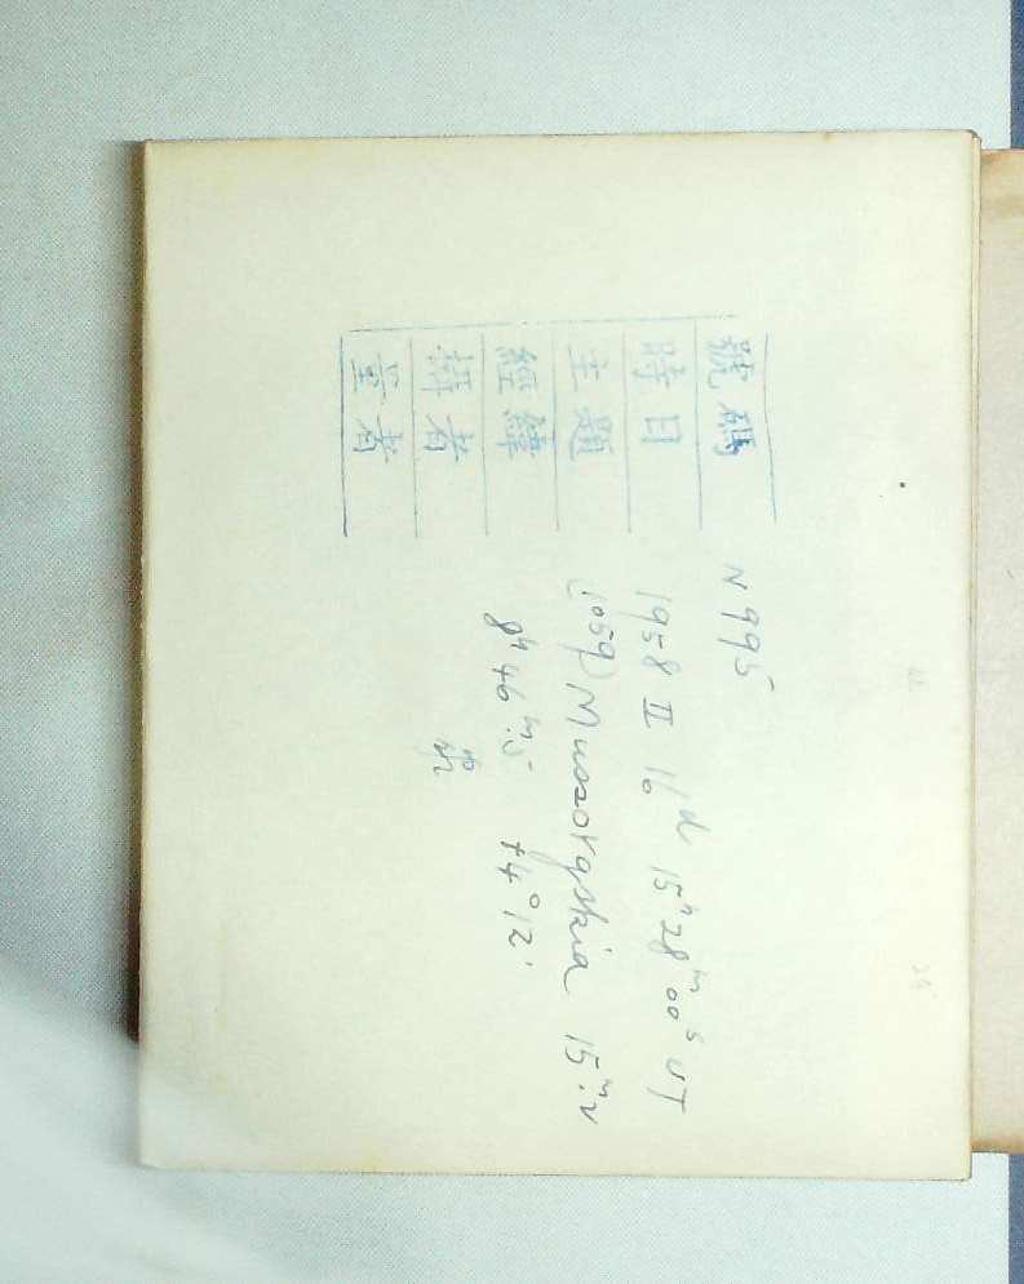 號碼 N 995
時日 1958 II 16ᵈ 15ʰ28ᵐ00ˢ UT
主題 (1059) Mussorgskia 15ᵐ.2
經緯 8ʰ46ᵐ.5 +4°12'
攝者
量者